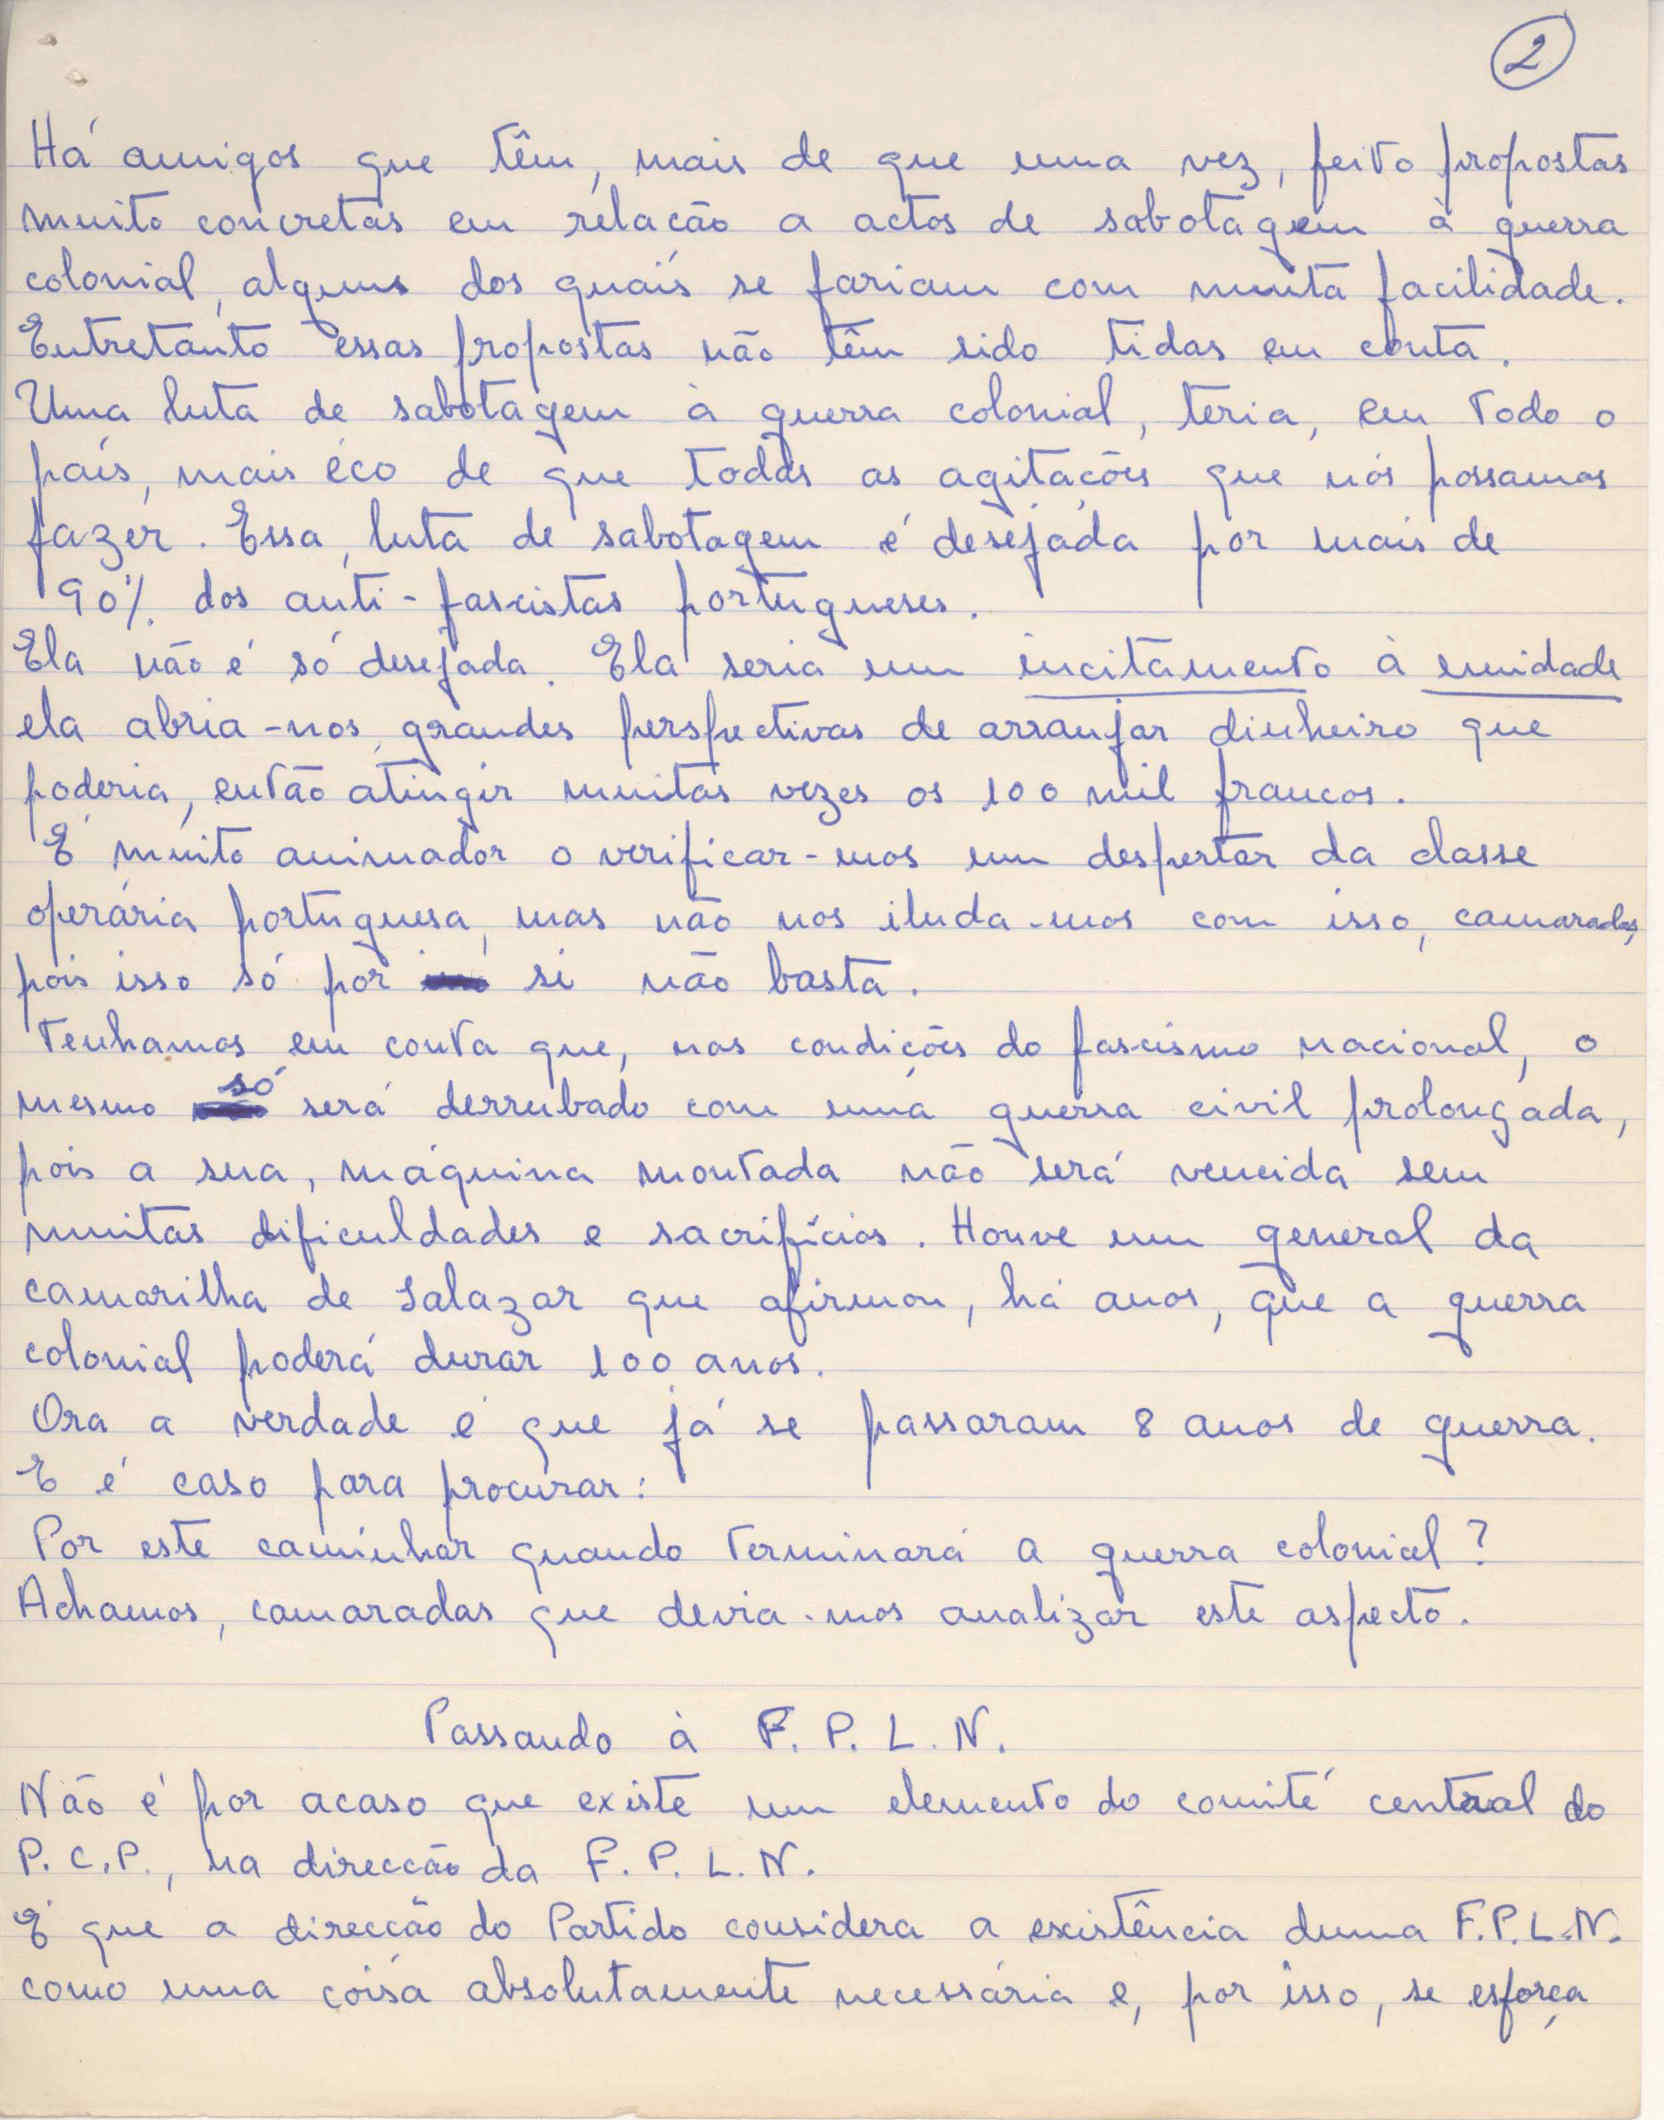 2
Há amigos que têm, mais de que uma vez, feito propostas
muito concretas em relacão a actos de sabotagem à guerra
colonial, alguns dos quais se fariam com muita facilidade.
Entretanto essas propostas não têm sido tidas em conta.
Uma luta de sabotagem à guerra colonial, teria, em todo o
país, mais éco de que todas as agitações que nós possamos
fazer. Essa luta de sabotagem é desejada por mais de
90% dos anti-fascistas portugueses.
Ela não é só desejada. Ela seria um incitamento à unidade
ela abria-nos grandes perspectivas de arranjar dinheiro que
poderia, então atingir muitas vezes os 100 mil francos.
É muito animador o verificar-mos um despertar da classe
operária portuguesa, mas não nos iluda-mos com isso, camaradas,
pois isso só por si não basta.
Tenhamos em conta que, nas condições do fascismo nacional, o
mesmo só será derrubado com uma guerra civil prolongada,
pois a sua, máquina montada não será vencida sem
muitas dificuldades e sacrifícios. Houve um general da
camarilha de Salazar que afirmou, há anos, que a guerra
colonial poderá durar 100 anos.
Ora a verdade é que já se passaram 8 anos de guerra.
E é caso para procurar:
Por este caminhar quando terminará a guerra colonial?
Achamos, camaradas que devia-mos analizar este aspecto.
Passando à F. P. L. N.
Não é por acaso que existe um elemento do comité central do
P. C. P., na direcção da F. P. L. N.
É que a direcção do Partido considera a existência duma F.P.L.N.
como uma coisa absolutamente necessária e, por isso, se esforça